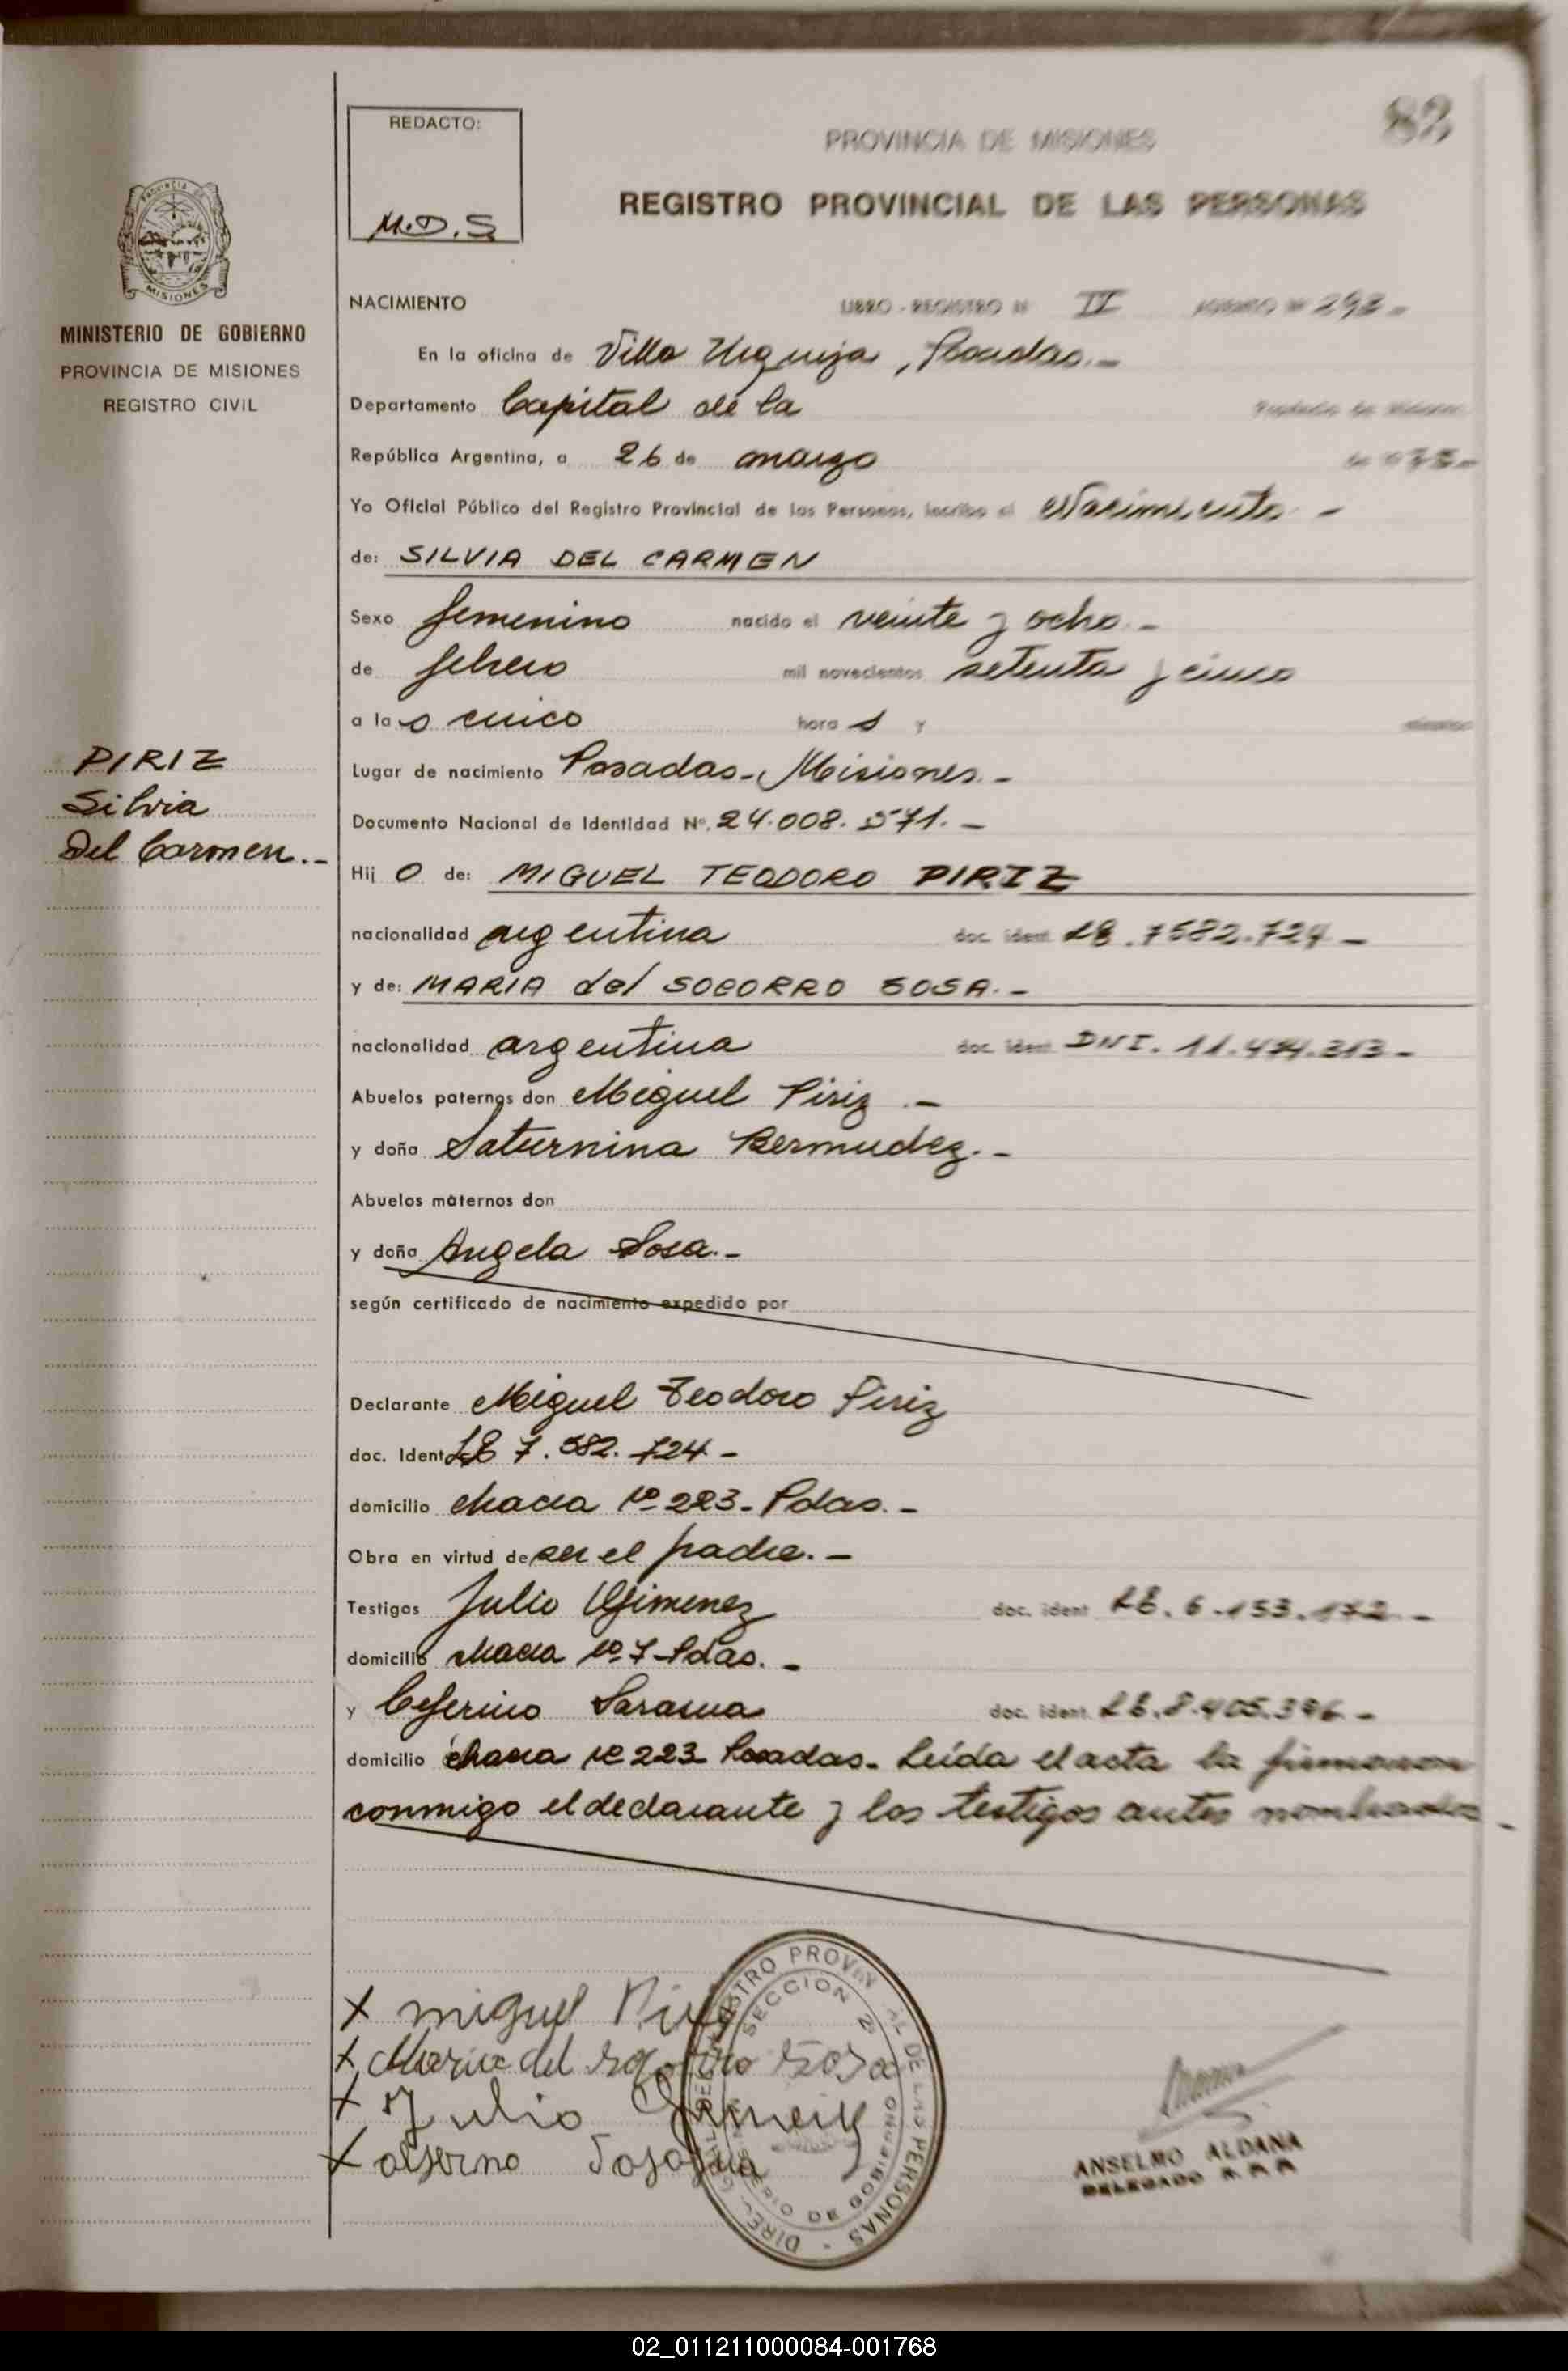 82
REDACTO:
M.D.S
PROVINCIA DE MISIONES
REGISTRO PROVINCIAL DE LAS PERSONAS
PROVINCIA DE
MISIONES
MINISTERIO DE GOBIERNO
PROVINCIA DE MISIONES
REGISTRO CIVIL
PIRIZ
Silvia
Del Carmen.-
NACIMIENTO LIBRO - REGISTRO Nº IV ASIENTO Nº 293-
En la oficina de Villa Urquiza, Posadas.-
Departamento Capital de la Provincia de Misiones
República Argentina, a 26 de marzo de 1975-
Yo Oficial Público del Registro Provincial de las Personas, inscribo el Nacimiento -
de: SILVIA DEL CARMEN
Sexo femenino nacido el veinte y ocho.-
de febrero mil novecientos setenta y cinco
a las cinco horas y minutos
Lugar de nacimiento Posadas-Misiones.-
Documento Nacional de Identidad Nº. 24.008.571.-
Hij o de: MIGUEL TEODORO PIRIZ
nacionalidad argentina doc. ident. LE.7582.724-
y de: MARIA del SOCORRO SOSA.-
nacionalidad argentina doc. ident. DNI. 11.474.313-
Abuelos paternos don Miguel Piriz.-
y doña Saturnina Bermudez.-
Abuelos maternos don
y doña Angela Sosa.-
según certificado de nacimiento expedido por
Declarante Miguel Teodoro Piriz
doc. Ident LE 7.582.724-
domicilio chacra Nº 223-Pdas.-
Obra en virtud de ser el padre.-
Testigos Julio Gimenez doc. ident LE.6.153.172.-
domicilio chacra Nº 7-Pdas.-
y Ceferino Sarasua doc. ident. LE.8.405.396-
domicilio chacra Nº 223 Posadas. Leída el acta la firmaron
conmigo el declarante y los testigos antes nombrados-
X miguel Piriz
X Maria del socorro Sosa
X Julio
X
SECCION 2ª
MINISTERIO DE GOBIERNO
DE LAS PERSONAS
ANSELMO ALDANA
DELEGADO R.P.P.
02_011211000084-001768